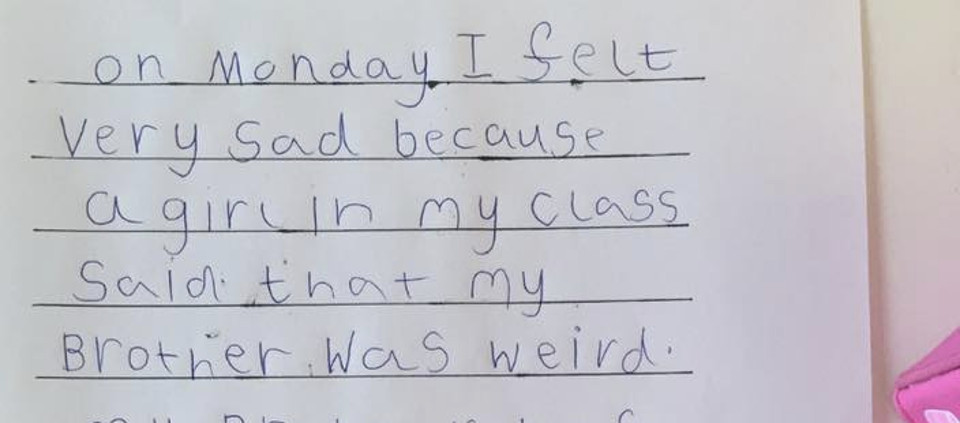 on Monday I felt
Very Sad because
a girl in my class
Said that my
Brother Was weird.